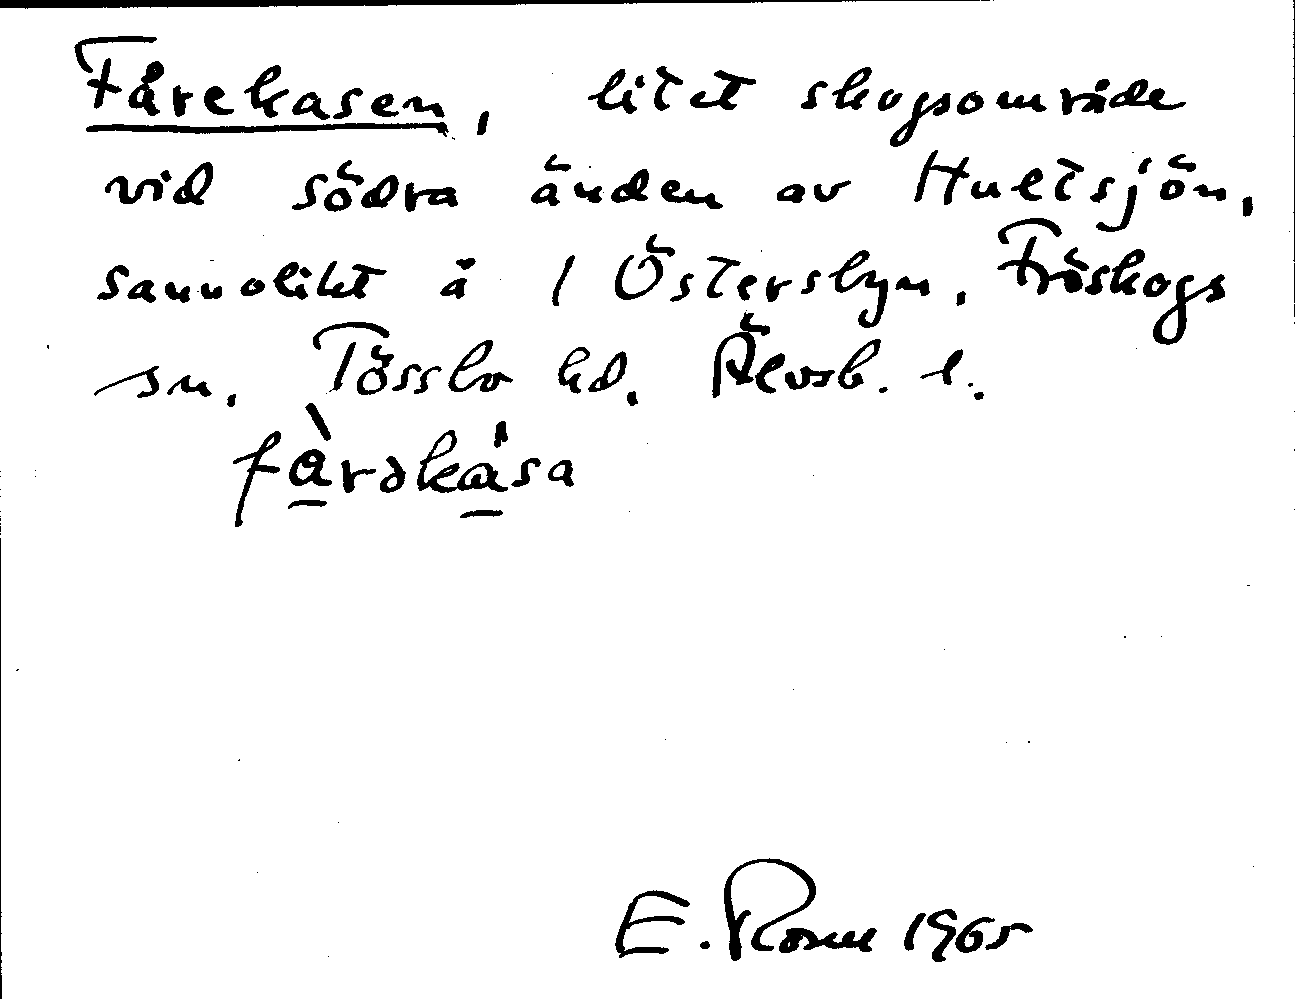 Fårekasen, litet skogsområde
vid södra änden av Hultsjön,
sannolikt å 1 Österbyn, Fröskogs
sn. Tössbo hd. Älvsb. l.
fàrəkása
E. Rosm 1965